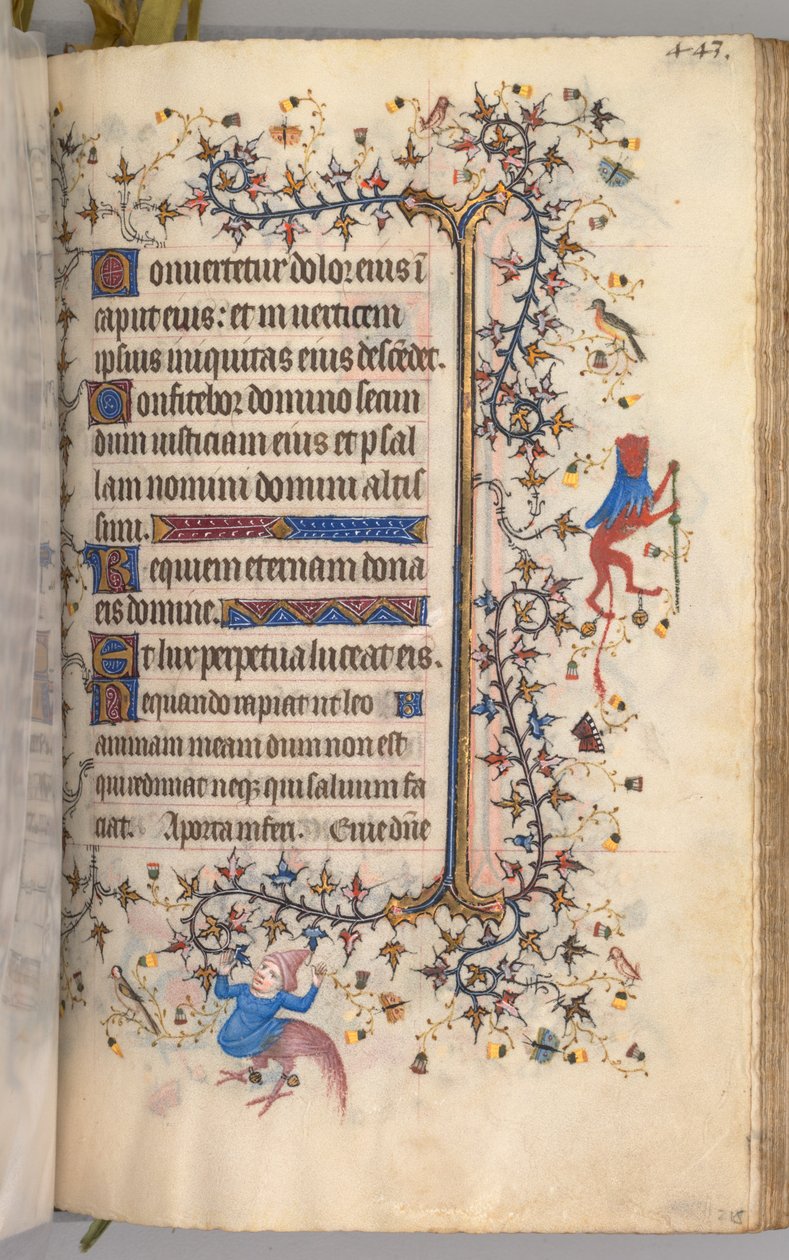 443.
Conuertetur dolor eius ī
caput eius: et in uerticem
ipsius iniquitas eius descēdet.
Confitebor domino secun
dum iusticiam eius et psal
lam nomini domini altis
simi.
Requiem eternam dona
eis domine.
Et lux perpetua luceat eis.
Nequando rapiat ut leo
animam meam dum non est
qui redimat neqʒ qui saluum fa
ciat. A porta inferi. Erue dn̄e
215